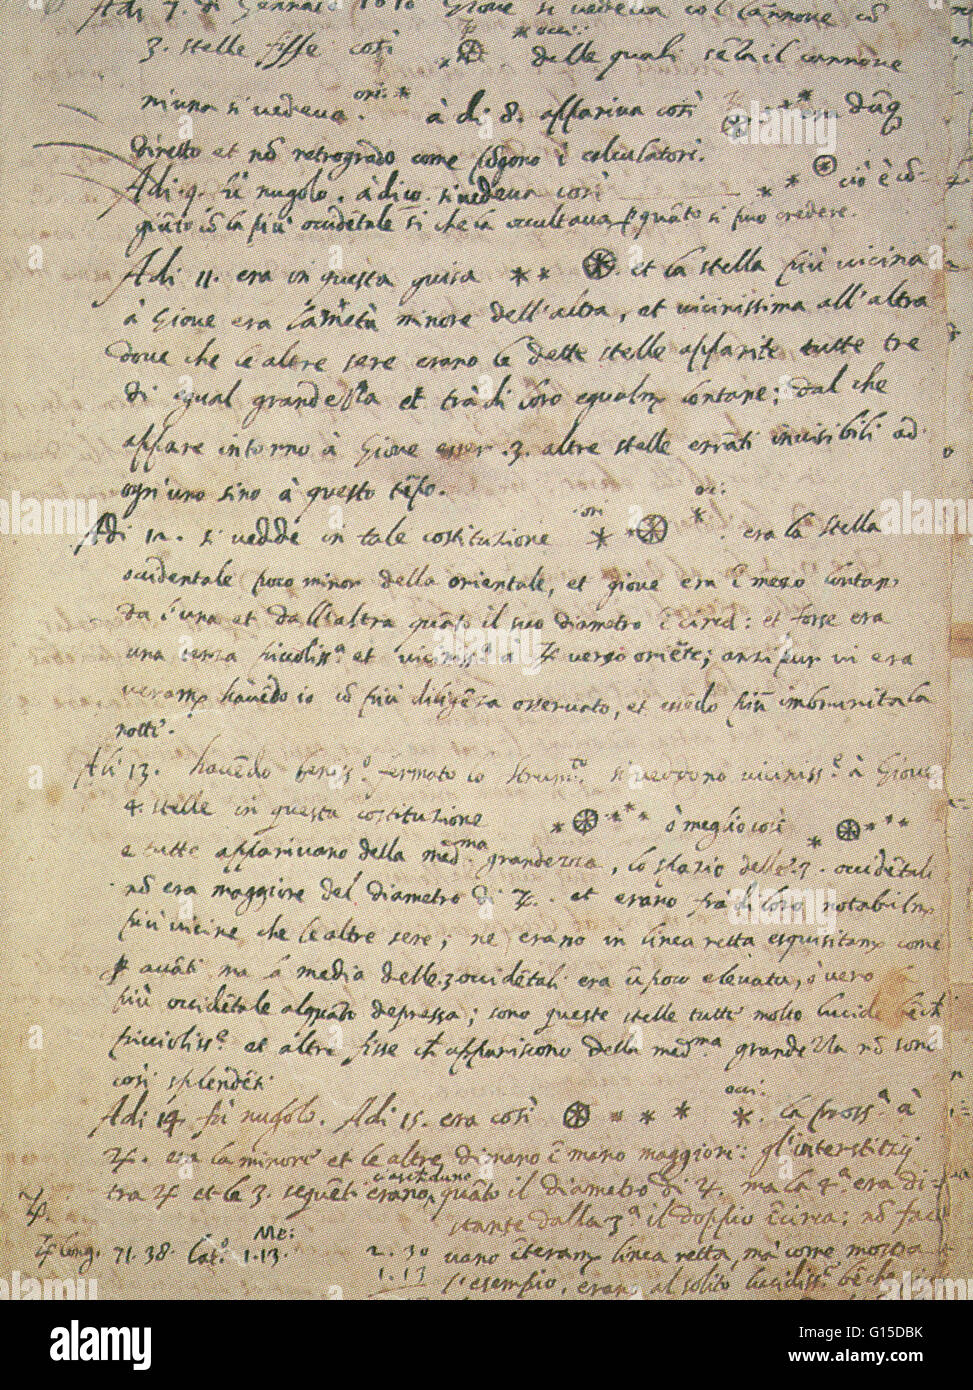 Adi 7. di Gennaio 1610 Giove si vedeva col Cannone cõ
3. stelle fisse così occi: delle quali sẽza il cannone
niuna si vedeva. ori: à dì 8. appariva così era dũq
diretto et nõ retrogrado come põgono i calculatori.
Adi 9. fù nugolo. à dì 10. si vedeva così cioè cõ-
giũto cõ la più occidẽtale sì che la occultava ꝑ quãto si può credere.
Adi 11. era in questa guisa et la stella più vicina
à Giove era la metà minore dell'altra, et vicinissima all'altra
dove che le altre sere erano le dette stelle apparite tutte tre
di egual grandezza et trà di loro egualm. lontane; dal che
appare intorno à Giove esser .3. altre stelle errãti invisibili ad
ogn'uno sino à questo tẽpo.
Adi 12. si vedde in tale costituzione ori occ: era la stella
occidentale poco minor della orientale, et giove era ĩ mezo lontan
da l'una et dall'altra quãto il suo diametro ĩ circa: et forse era
una terza piccoliss.ª et viciniss.ª à ♃ verso oriẽte; anzi pur vi era
veram. havẽdo io cõ più diligẽza osservato, et essẽdo più imbrunita la
notte.
Adi 13. havẽdo beniss.º fermato lo strum.to si veddono viciniss.e à Giove
4. stelle in questa costituzione ò meglio così
e tutte apparivano della med.ma grandezza, lo spazio delle .3. occidẽtali
nõ era maggiore del diametro di ♃. et erano frà di loro notabilm.
più vicine che le altre sere; ne erano in linea retta esquisitam. come
ꝑ avãti ma la media delle .3 occidẽtali era ũ poco elevata, ò vero
più occidẽtale alquãto depressa; sono queste stelle tutte molto lucide bẽche
piccioliss.e et altre fisse che appariscono della med.ma grandezza nõ sono
così splendẽti
Adi 14 fù nugolo. Adi 15. era così occi. la pross.ª à
♃. era la minore et le altre di mano ĩ mano maggiori: gl'interstitij
tra ♃ et le 3. seguẽti erano, ciascheduno quãto il diametro di ♃. ma la 4.ª era di-
stante dalla 3.ª il doppio ĩ circa: nõ face
♃ long. 71.38. Lat.º 1.13. Me: 2.30 vano ĩteram. linea retta, ma come mostra
1.13 l'esempio, erano al solito lucidiss.e bẽche
alamy
Image ID: G15DBK
www.alamy.com